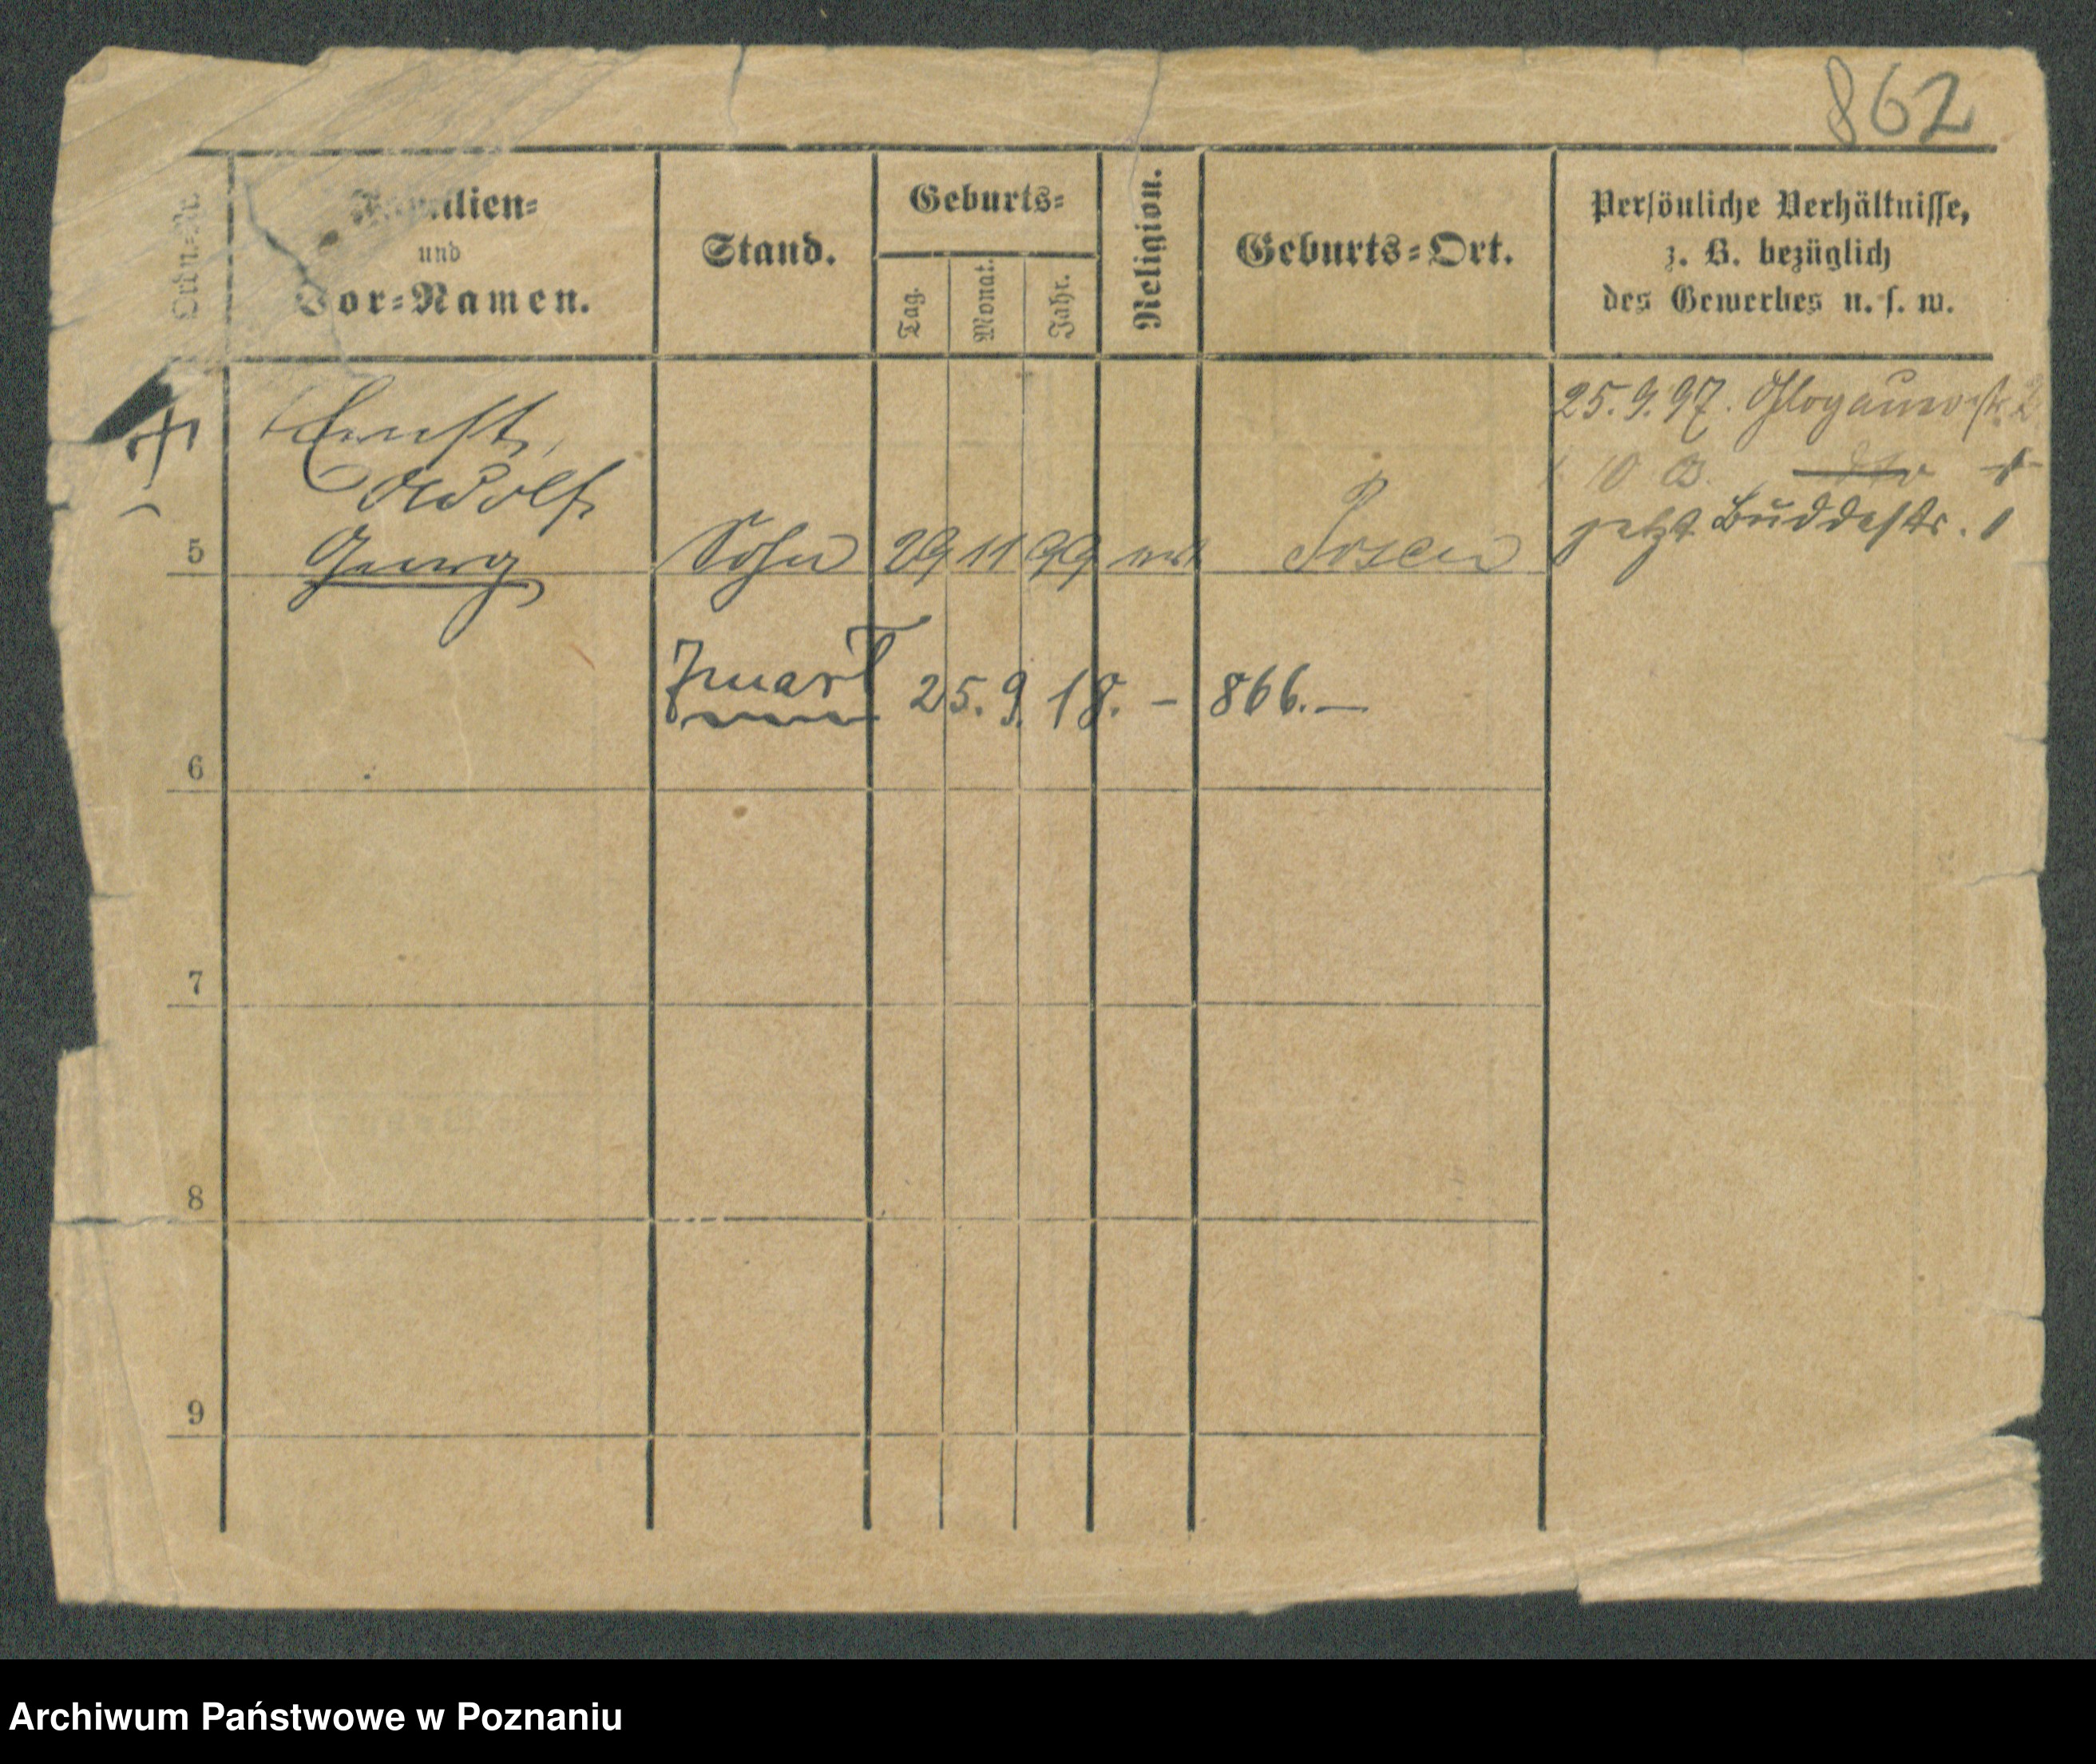 862
Ordn.-Nr.
Familien-
und
Vor-Namen.
Stand.
Geburts-
Tag.
Monat.
Jahr.
Religion.
Geburts-Ort.
Persönliche Verhältnisse,
z. B. bezüglich
des Gewerbes u. s. w.
Ernst,
Adolf
5 Georg Sohn 29 11 99 Posen
25.9.97. Glogauerstr. 2
jetzt Buddestr. 1
Zmarł 25.9.18. - 866.-
6
7
8
9
Archiwum Państwowe w Poznaniu